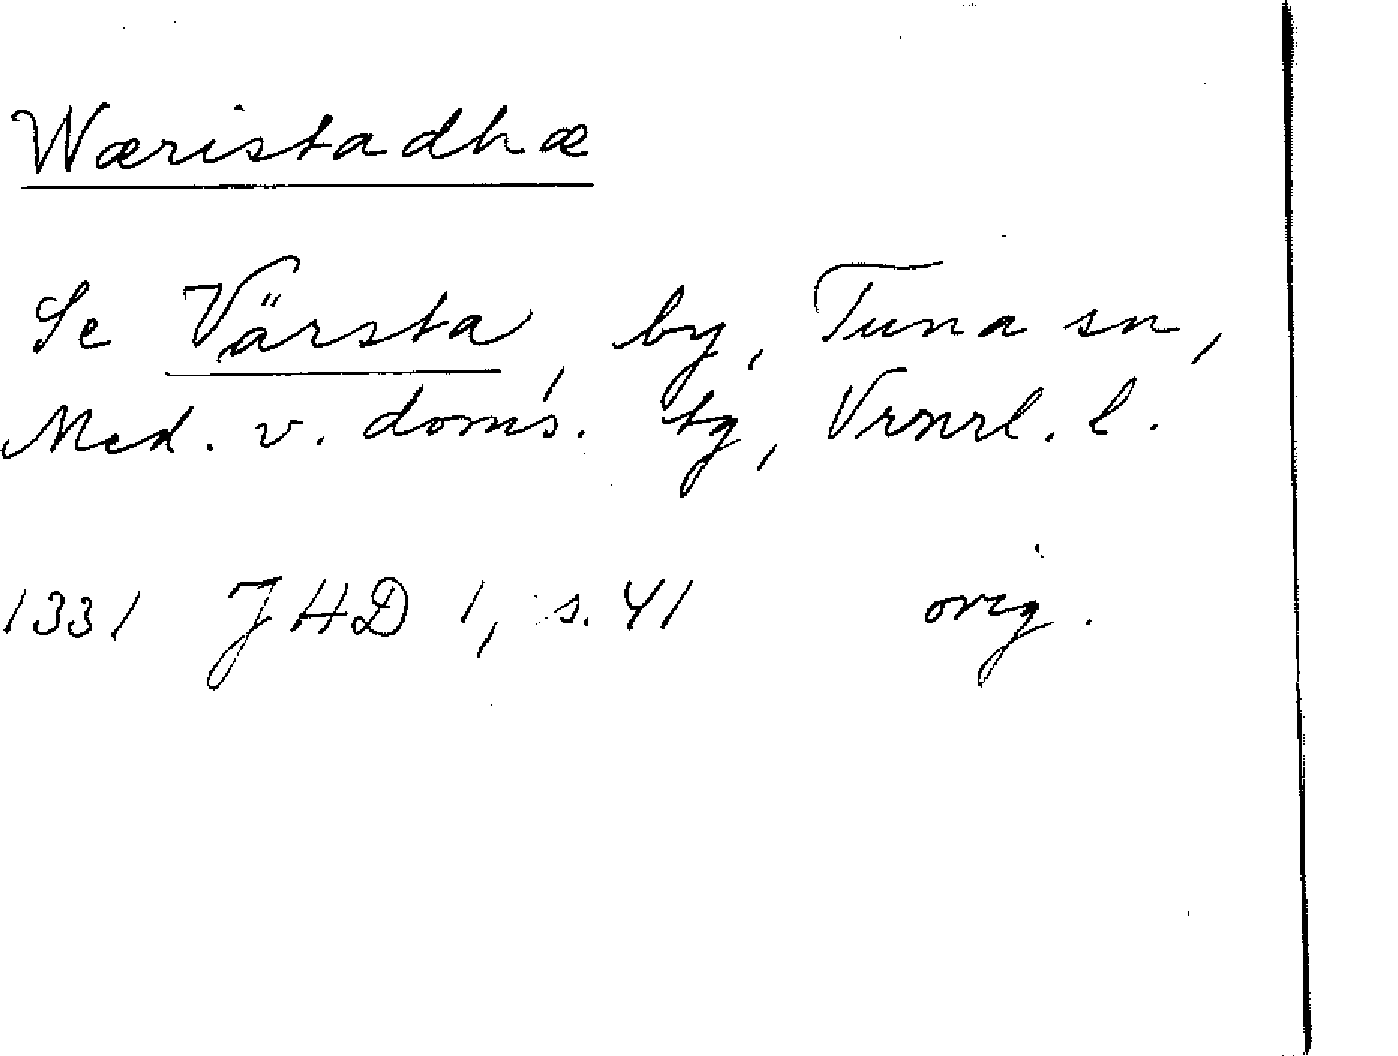 Wæristadhæ
Se Värsta, by, Tuna sn,
Med. v. doms. tg, Vrnrl. l.
1331 JHD 1, s. 41 orig.